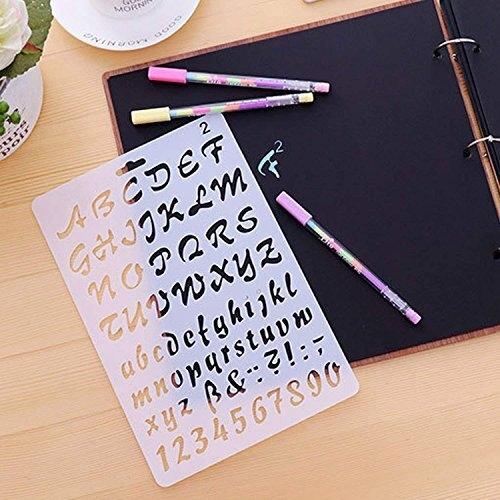 GOOD MORNING
2
ABCDEF
GHIJKLM
NOPQRS
TUVWXYZ
abcdefghijkl
mnopqrstuvw
xyz ß&:;?!:,-
1234567890
F²